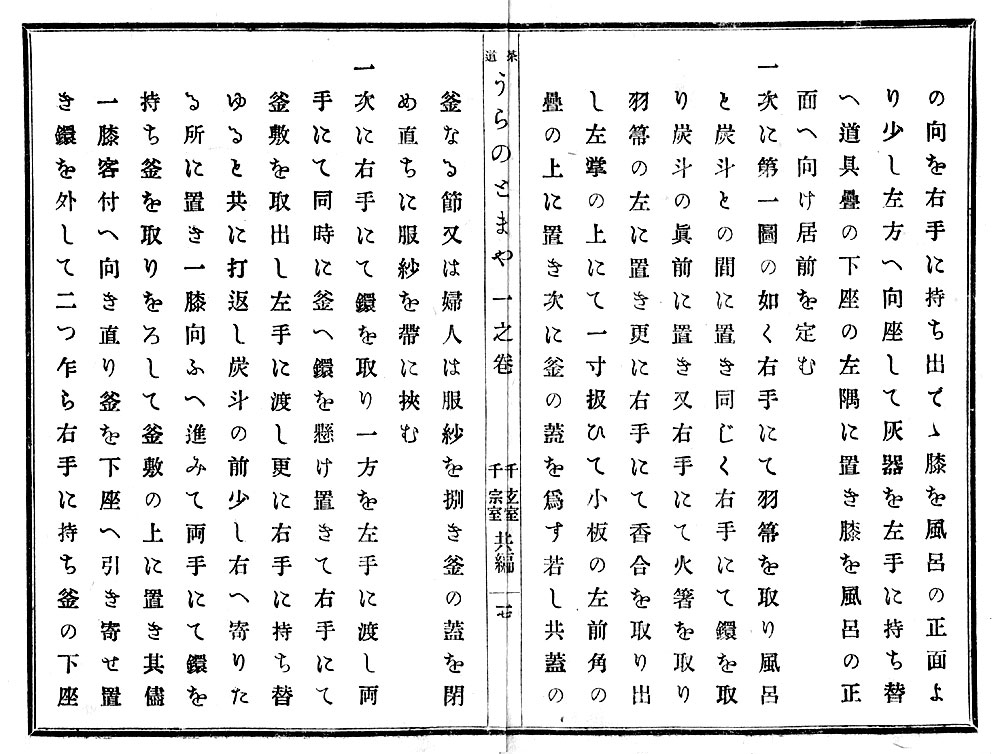 の向を右手に持ち出でゝ膝を風呂の正面よ
り少し左方へ向座して灰器を左手に持ち替
へ道具疊の下座の左隅に置き膝を風呂の正
面へ向け居前を定む
一次に第一圖の如く右手にて羽箒を取り風呂
と炭斗との間に置き同じく右手にて鐶を取
り炭斗の眞前に置き又右手にて火箸を取り
羽箒の左に置き更に右手にて香合を取り出
し左掌の上にて一寸扱ひて小板の左前角の
疊の上に置き次に釜の蓋を爲す若し共蓋の
茶道
うらのとまや一之卷
千玄室
千宗室
共編
十七
釜なる節又は婦人は服紗を捌き釜の蓋を閉
め直ちに服紗を帶に挾む
一次に右手にて鐶を取り一方を左手に渡し兩
手にて同時に釜へ鐶を懸け置きて右手にて
釜敷を取出し左手に渡し更に右手に持ち替
ゆると共に打返し炭斗の前少し右へ寄りた
る所に置き一膝向ふへ進みて兩手にて鐶を
持ち釜を取りをろして釜敷の上に置き其儘
一膝客付へ向き直り釜を下座へ引き寄せ置
き鐶を外して二つ乍ら右手に持ち釜の下座